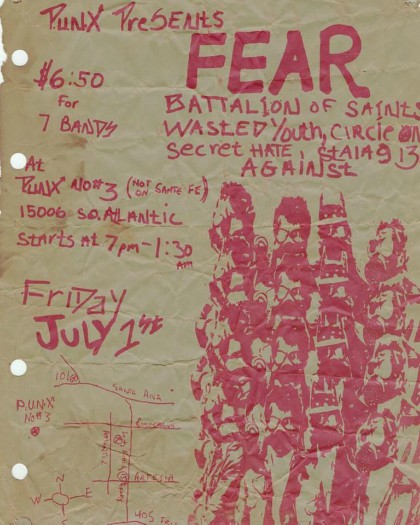 P.U.N.X PreSENts
FEAR
$6:50
for
7 BANDS
BATTALION OF SAINTS
WASTED Youth, CIRCLE ON
Secret HATE, StAlAg 13
AGAINSt
At
PUNX NO# 3 (NOT ON SANTE FE)
15006 SO. ATLANTIC
StArtS At 7pm-1:30 AM
FriDay
JULY 1st
SANTA ANA
P.U.N.X
No# 3
ROSECRANS
ARTESIA
N
W
E
405